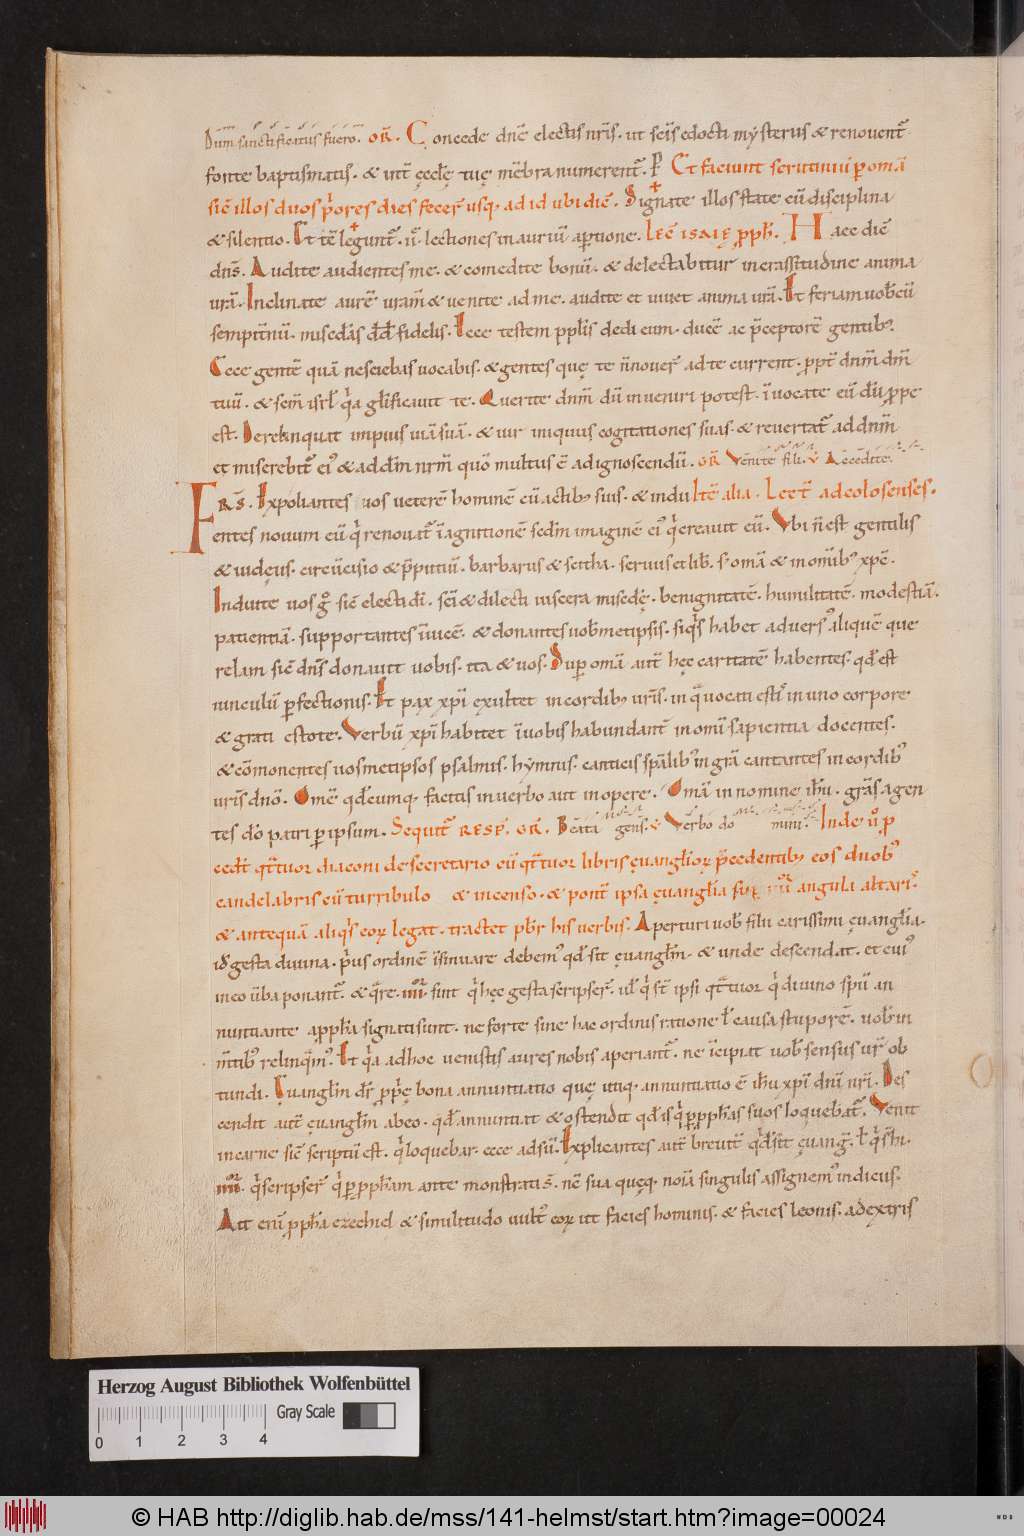 Dum sanctificatus fuero. OR. Concede dnē electis nr̄is. ut sc̄is edocti mysteriis & renouent̄
fonte baptismatis. & int̄ ęcclę tuę mēbra numerent̄. Et faciunt scrutiniū p omā
sic̄ illos duos p̄ores dies fecer̄ usq; ad id ubi dic̄. Signate illos state cū disciplina
& silentio. Et tc̄ legunt̄. lectiones in auriū aptione. LEC̄ ISAIĘ pph̄. Haec dic̄
dn̄s. Audite audientes me. & comedite bonū. & delectabitur in crassitudine anima
urā. Inclinate aurē uram̄ & uenite ad me. audite et uiuet anima urā. Et feriam uob̄cū
sempit̄nū. misc̄das dd̄ fidelis. Ecce testem ppl̄is dedi eum. ducē ac p̄ceptorē gentib;.
Ecce gentē quā nesciebas uocabis. & gentes quę te n̄ nouer̄ ad te current. ppt̄ dnm̄ dm̄
tuū. & scm̄ isrl̄ qa gl̄ificauit te. Querite dnm̄ dū inueniri potest. īuocate eū dū ppe
est. Derelinquat impius uiā suā. & uir iniquus cogitationes suas. & reuertat̄ ad dnm̄
et miserebit̄ ei' & ad dm̄ nrm̄ quō multus ē ad ignoscendū. OR̄ Venite filii. v Accedite.
FRS̄. Expoliantes uos ueterē hominē cū actib; suis. & indu Itē alia. Lect̄ ad colosenses.
entes nouum eū q renouat̄ ī agnitionē sc̄dm imaginē ei' q creauit eū. Vbi n̄ est gentilis
& iudęus. circūcisio & p̄putiū. barbarus & scitha. seruus et lib̄. s; omā & in omīb; xpc̄.
Induite uos g̊ sic̄ electi dī. sc̄i & dilecti uiscera misc̄dę. benignitatē. humilitatē. modestiā.
patientiā. supportantes īuicē. & donantes uob̄metipsis. siqs habet aduers' aliquē que
relam sic̄ dn̄s donauit uobis. ita & uos. Sup omā aut̄ hęc caritatē habentes. qd̄ est
uinculū pfectionis. Et pax xpī exultet in cordib; uris̄. in q uocati estis in uno corpore
& grati estote. Verbū xpī habitet ī uobis habundant̄ in omī sapientia docentes.
& cōmonentes uosmetipsos psalmis. hymnis. canticis spālib; in grā cantantes in cordib;
uris̄ dnō. Omē qd̄cumq; facitis in uerbo aut in opere. Omā in nomine ih̄u. grās agen
tes dō patri p ipsum. Sequit̄ RESP̄. OR̄. Beata gens. v Verbo domini. Inde ů p
cedt̄ qt̄tuor diaconi de secretario cū qt̄tuor libris ęuanglior̄ p̄cedentib; eos duob;
candelabris cū turribulo & incenso. & ponit̄ ipsa ęuanglia sup angula altari'.
& antequā aliqs eor̄ legat. tractet pbr̄ his uerbis. Aperturi uob̄ filii carissimi ęuanglia.
id̄ gesta diuina. p̄us ordinē īsinuare debem' qd̄ sit ęuanglm̄. & unde descendat. et cui'
in eo ūba ponant̄. & qre. IIII. sint q hęc gesta scripser̄. ul̄ q sn̄t ipsi qt̄tuor q diuino spū an
nuntiante apph̄a signati sunt. ne forte sine hac ordinis ratione l̄ causa stuporē. uob̄ in
m̄tib; relinqm'. Et qa ad hoc uenistis aures uobis aperiant̄. ne īcipiat uob̄ sensus ur̄ ob
tundi. Ęuanglm̄ dr̄ pp̄ę bona annuntiatio quę utiq; annuntiatio ē ih̄u xpī dnī nrī. Des
cendit aut̄ ęuanglm̄ ab eo. qd̄ annuntiat & ostendit qd̄ is q p pph̄as suos loquebat̄. Venit
in carne sic̄ scriptū est. q loquebar. ecce adsū. Explicantes aut̄ breuit̄ qd̄ sit ęuanḡ. l̄ q s̄ hi.
IIII. q scripser̄ q p pph̄am ante monstrati s̄. nc̄ sua quęq; noīa singulis assignem' indicus.
Ait enī pph̄a ezechiel & similitudo uult' eor̄ ut facies hominis. & facies leonis. a dextris
Herzog August Bibliothek Wolfenbüttel
Gray Scale
0 1 2 3 4
© HAB http://diglib.hab.de/mss/141-helmst/start.htm?image=00024